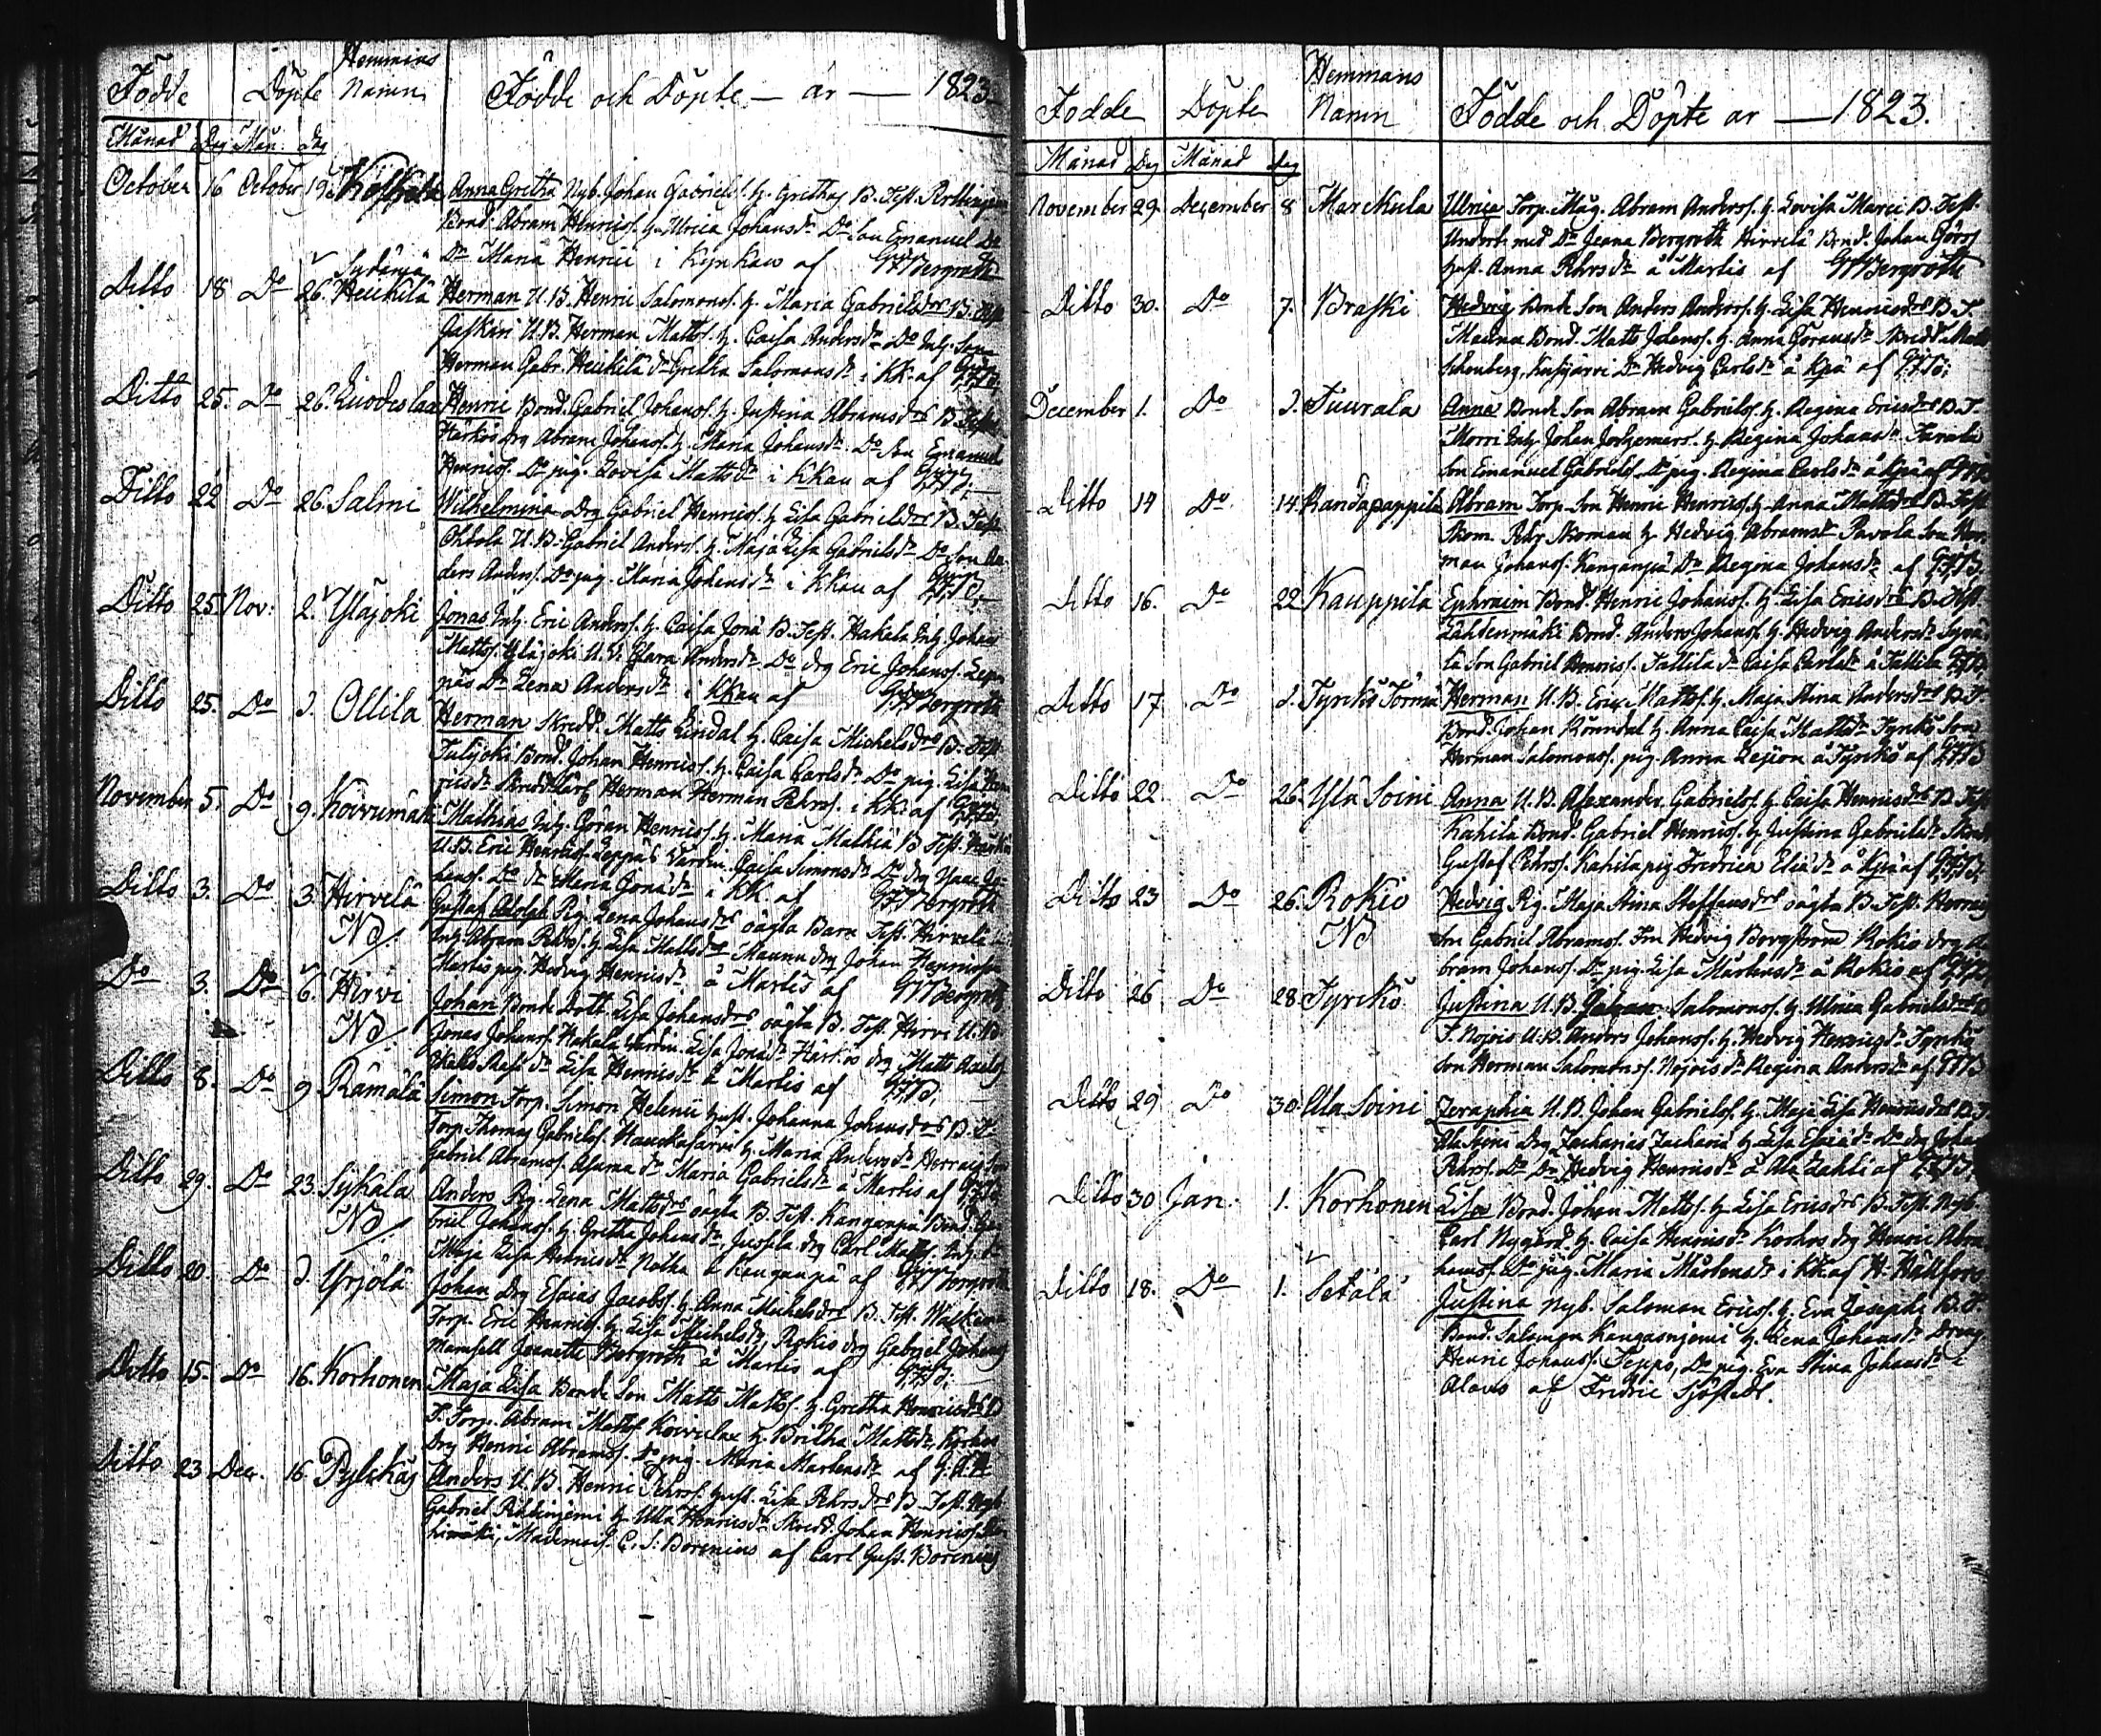 Födde Döpte Hemmans Namn Födde och Döpte — år — 1823
Månad Dag Mån. dag
October 16 October 19 Anna Gretha Nyb. Johan Gabrielss. h. Gretha B. Test.
Bond. Abram Henricss. h. Ulrica Johansdr Do Son Emanuel Do
Dr Maria Henric i Kyrkan af GFBergroth
Ditto 18 Do 26. Sydänmä Heikkilä Herman U.B. Henric Salomonss. h. Maria Gabrielsdrs B. Test
Jaskari U.B. Herman Mattss. h. Caisa Andersdr Do Inh. Son
Herman Gabr. Heikkilä dr Gretha Salomonsdr i KK. af GFB.
Ditto 25. Do 26. Luodeslax Henric Bond. Gabriel Johanss. h. Justina Abramsdrs B. Test
Härkös drg Abram Johanss. h. Maria Johansdr Do Son Emanuel
Henricss. Do pig. Lovisa Mattsdr i KKan af GFB.
Ditto 22 Do 26. Salmi Wilhelmina Drg Gabriel Henricss. h. Lisa Gabrielsdrs B. Test
Ohtola U.B. Gabriel Anderss. h. Maja Lisa Gabrielsdr Do Son An-
ders Anderss. Do pig. Maria Johansdr i KKan af GFB.
Ditto 25 Nov: 2. Yläjoki Jonas Inh. Eric Anderss. h. Caisa Jona B. Test. Hakala Inh. Johan
Mattss. Yläjoki U.V. Clara Andersdr Do drg Eric Johanss. Lep-
päs Dr Lena Andersdr i KKan af GFBergroth
Ditto 25. Do 2. Ollila Herman Skredd. Matts Lindal h. Caisa Michelsdrs B. Test
Tulijoki Bond. Johan Henricss. h. Caisa Carlsdr Do pig. Lisa Hen-
ricsdr Skreddkarl Herman Herman Pehrss. i KK. af GFB.
November 5. Do 9. Koivumäki Mathias Inh. Göran Henricss. h. Maria Mathia B. Test.
U.B. Eric Henricss. Leppäs Värdin. Caisa Simonsdr Do drg Isaac Jo-
hanss. Do dr Maria Jonædr i KK. af GFBergroth
Ditto 3. Do 3. Hirvelä Gustaf Adolph Pig. Lena Johansdrs oägta Barn Test. Hirvelä
NB. Inh. Abram Pehrss. h. Lisa Mattsdr Maunu drg Johan Henricsson
Martis pig. Hedvig Henricsdr å Martis af GFBergroth
Do 3. Do 6. Hirvi Johan Bonde Dott. Lisa Johansdrs oägta B. Test. Hirvi U.B.
NB. Jonas Johanss. Hakala Värdin. Lisa Jonædr Härkös drg Matts Axelss
dr Lisa Henricsdr å Martis af GFB.
Ditto 8. Do 9. Rämälä Simon Torp. Simon Heleni hust. Johanna Johansdrs B. T.
Torp. Thomas Gabrielss. Haukasaari h. Maria Andersdr Herraig Son
Gabriel Abramss. Asuma dr Maria Gabrielsdr å Martis af GFB.
Ditto 29. Do 23. Sykala Anders Pig. Lena Mattsdrs oägta B. Test. Kanganpä Bond. Ga-
NB. briel Johanss. h. Gretha Johansdr, Jussila drg Carl Mattss. Inh. dr
Maja Lisa Henricsdr å Kanganpä af GFBergroth
Ditto 20. Do 2. Yrjölä Johan drg Esaias Jacobss. h. Anna Michelsdrs B. Test.
Torp. Eric Henricss. h. Lisa Michelsdr, Rokio drg Gabriel Johanss
Mamsell Jeanette Bergroth å Martis af GFB.
Ditto 15. Do 16. Korhonen Maja Lisa Bonde Son Matts Mattss. h. Gretha Henricsdrs B
T. Torp. Abram Mattss Koivulax h. Britha Mattsdr, Kyrkos
Drg Henric Abramss. Do pig. Maria Martensdr af G.F.B.
Ditto 23 Dec. 16. Pylckäs Anders U.B. Henric Pehrss. hust. Lisa Pehrsdrs B. Test. Nyb.
Gabriel Pihlinjemi h. Ulla Henricsdr Skredd. Johan Henricss.
Mademois. C.S. Borenius af Carl Gust. Borenius
Fodde Döpte Hemmans Namn Födde och Döpte år — 1823.
Månad Dag Månad dag
November 29. December 8 Marckula Ulrica Torp. Måg. Abram Anderss. h. Lovisa Marci B. Test.
Underb. med Do Jeana Bergroth Hirvelä Bond. Johan Görss
hust. Anna Pehrsdr å Martis af GFBergroth
Ditto 30. Do 7. Braski Hedvig Bonde Son Anders Anderss. h. Lisa Henricsdrs B. T.
Maunu Bond. Matts Johanss. h. Anna Göransdr Skredd. Matts
Schenberg, Kuhjärvi Dr Hedvig Carlsdr å Kpä af GFB;
December 1. Do 2. Tuurala Anna Bonde Son Abram Gabrielss. h. Regina Ericsdrs B. T.
Morri Inh. Johan h. Regina Johansdr
Son Emanuel Gabrielss. Do pig. Regina Carlsdr å Kpä af GFB
Ditto 14 Do 14. Randapappila Abram Torp. Son Henric Henricss. h. Anna Mattsdrs B. Test
Skom. Pehr Skoman h. Hedvig Abramsdr Pavola Son Her-
man Johanss. Kanganpä Dr Regina Johansdr af GFB.
Ditto 16. Do 22 Kauppila Ephraim Bond. Henric Johanss. h. Lisa Ericsdrs B. Test.
Lähdenmäki Bond. Anders Johanss. h. Hedvig Andersdr
Son Gabriel Henricss. Tallila dr Caisa Carlsdr å Tallila GFB.
Ditto 17. Do 2. Tyrckö Törmä Herman U.B. Eric Mattss. h. Maja Stina Andersdrs B. T
Bond. Johan Rönndal h. Anna Caisa Mattsdr Tyrckö Son
Herman Salomonss. pig. Anna Lejion å Tyrckö af GFB
Ditto 22. Do 26. Ylä Soini Anna U.B. Alexander Gabrielss. h. Caisa Henricsdrs B. Test
Kahila Bond. Gabriel Henricss. h. Justina Gabrielsdr
Gustaf Pehrss. Kahila pig Fredrica Eliædr å Kpä af GFB.
Ditto 23 Do 26. Rokio Hedvig Pig. Maja Stina Staffansdrs oägta B. Test. Herraig
NB Son Gabriel Abramss. Fru Hedvig Borgström Rokio drg A-
bram Johanss. Do pig. Lisa Mårtensdr å Rokio af GFB.
Ditto 26 Do 28. Tyrckö Justina U.B. Johan Salomonss. h. Ulrica Gabrielsdrs B
T. Nojois U.B. Anders Johanss. h. Hedvig Henricsdr Tyrckö
Son Herman Salomonss. Nojois dr Regina Andersdr af GFB
Ditto 29 Do 30. Ala Soini Zeraphia U.B. Johan Gabrielss. h. Maja Lisa Henricsdrs B. T.
Ala Soini Drg Zacharias Zacharia h. Lisa Esaiædr Do drg Johan
Pehrss. Do Dr Hedvig Henricsdr å Ala Lahti af GFB.
Ditto 30 Jan: 1. Korhonen Lisa Bond. Johan Mattss. h. Lisa Ericsdrs B. Test. Nyb.
Carl Nygård. h. Caisa Henricsdr Korhos drg Henric Abra-
hamss. Do pig. Maria Mårtensdr i KK. af H. Hällfors
Ditto 18. Do 1. Setälä Justina Nyb. Salomon Ericss. h. Eva Josephi B. T.
Bond. Salomon Kangasnjemi h. Lena Johansdr Dreng
Henric Johanss. Teppo, Do pig. Eva Stina Johansdr i
Alavo af Fredric Sjöstedt.